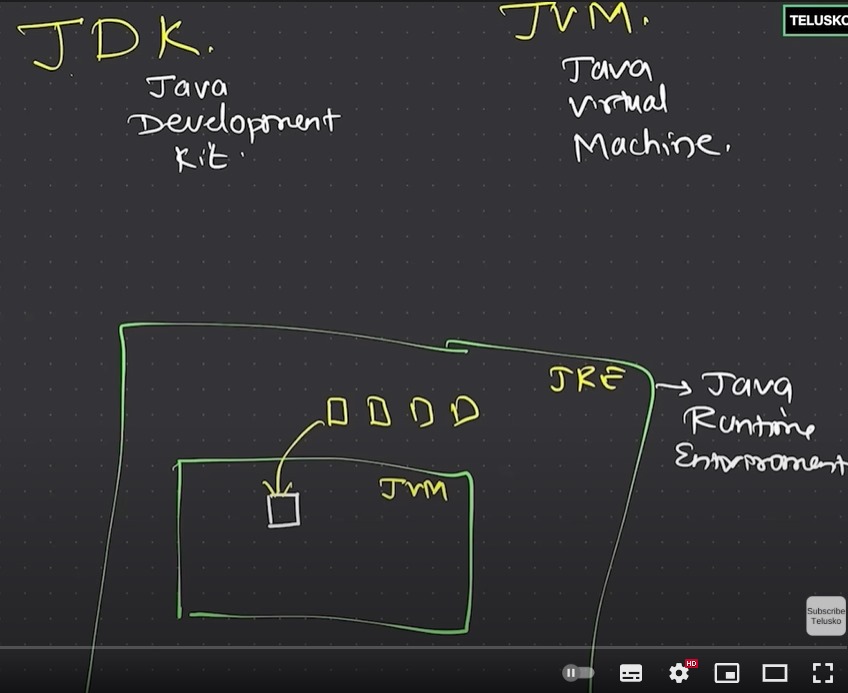 JDK.
Java
Development
Kit.
JVM.
Java
Virtual
Machine.
TELUSKO
JRE
Java
Runtime
Environment
JVM
Subscribe
Telusko
HD